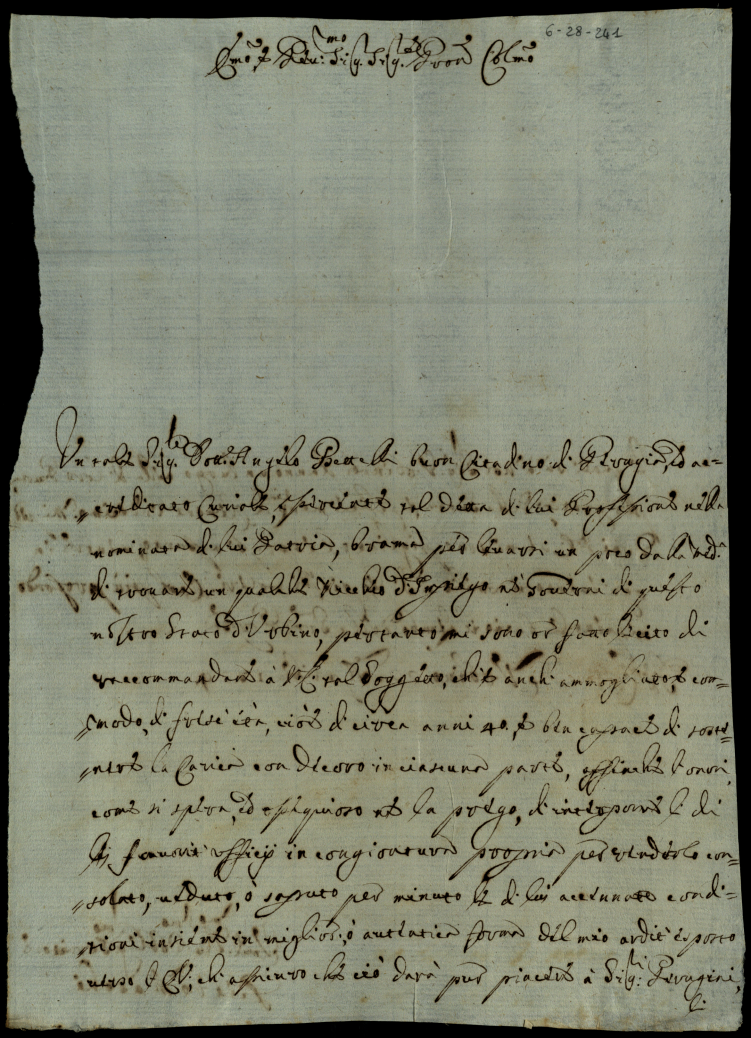 6-28-241
Emo, e Reu:mo Sig. Sig.re Pron Colmo
Un tale Sig.le Dott: Angelo Bettelli buon Citadino di Perugia, ed ac=
=creditato Curiale, esercente tal detta di lui Professione nella
nominata di lui Patria, brama per leuarsi un poco dalla
di trouare un qualche Nicchio d'Impiego ne Gouerni di questo
nostro Stato d'Urbino, pertanto mi sono or fatto lecito di
raccommandare à V. tal Soggetto, ch'è anche ammogliato, e com=
=modo, di fresc'età, cioè di circa anni 40, e ben capace di soste=
=nere la Carica con decoro in ciascuna parte, affinche l'onori,
come si spera, ed ossequioso ne la priego, di interporre li di
lei fauoriti officij in congiontura propria per renderlo con=
=solato, ueduto, ò saputo per minuto le di lui accennate condi=
=zioni insieme in miglior, ò autentica forma del mio ardit' esposto
uerso l' che assicuro che ciò darà pur piacere à Sig.ri Perugini,
li